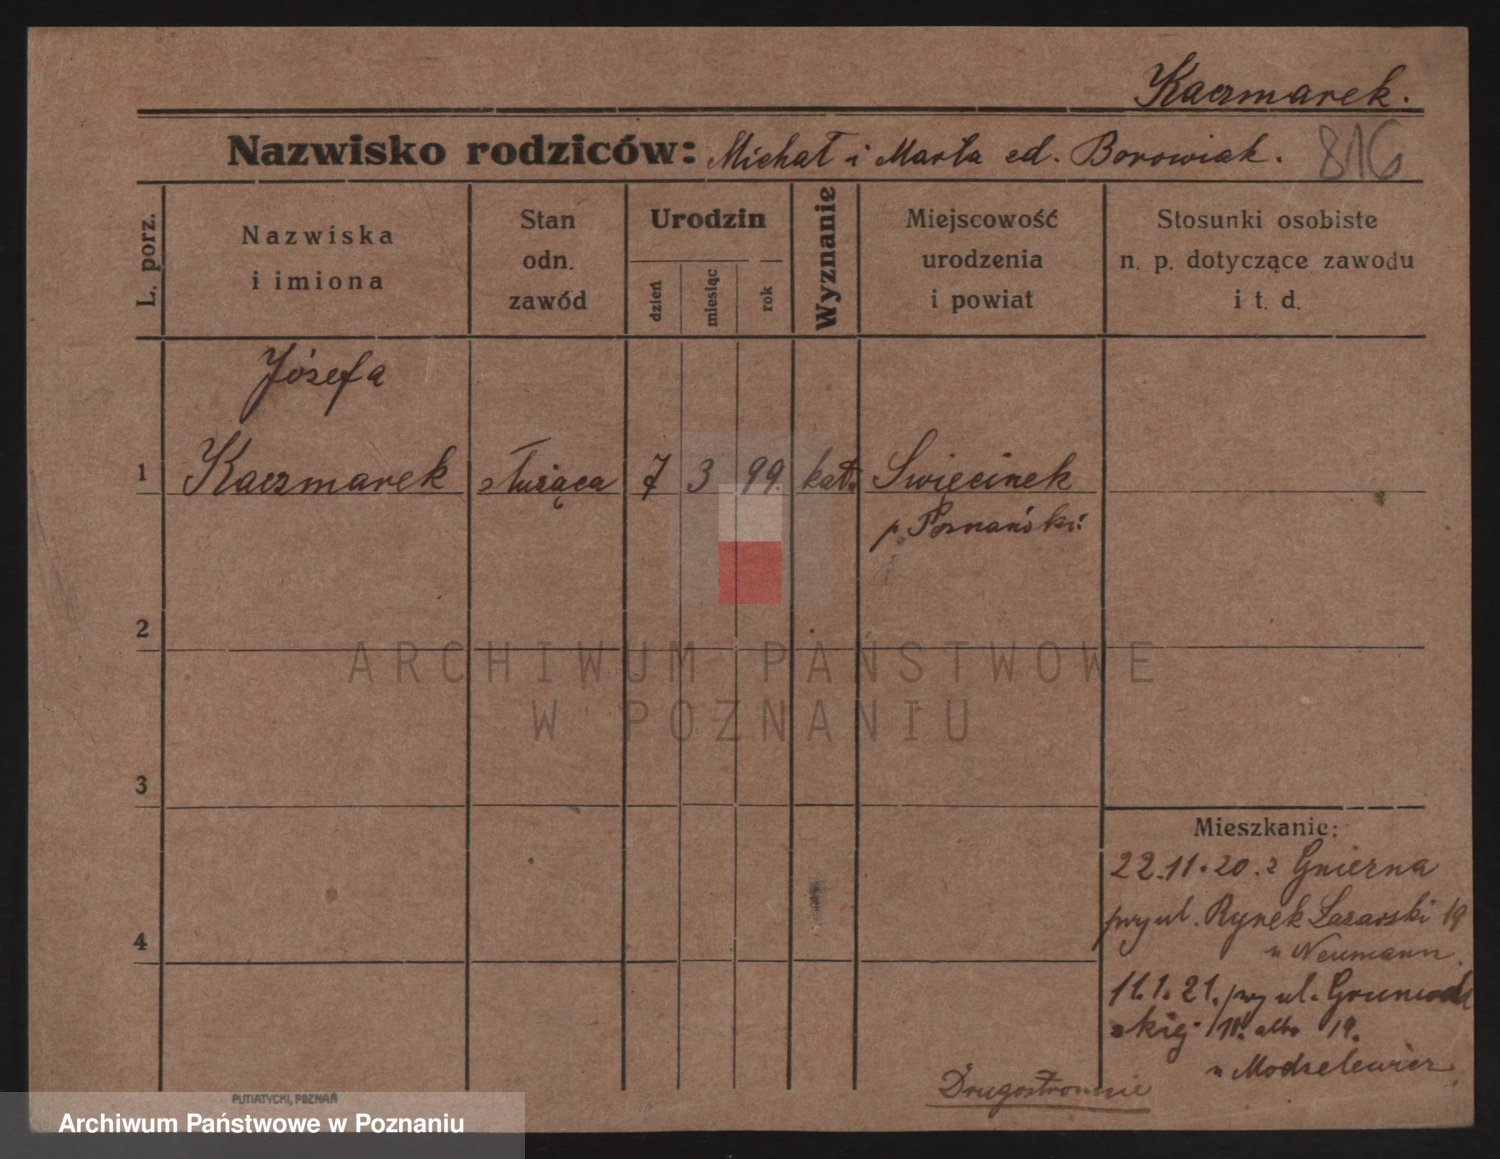 Kaczmarek.
Nazwisko rodziców: Michał i Marta ed. Borowiak.
816
L. porz.
Nazwiska
i imiona
Stan
odn.
zawód
Urodzin
dzień
miesiąc
rok
Wyznanie
Miejscowość
urodzenia
i powiat
Stosunki osobiste
n. p. dotyczące zawodu
i t. d.
Józefa
1 Kaczmarek służąca 7 3 99. kat. Swięcinek
p. Poznański
2
ARCHIWUM PAŃSTWOWE
W POZNANIU
3
Mieszkanie:
22.11.20. z Gniezna
przy ul. Rynek Łazarski 19
u Neumann.
11.1.21. przy ul. Grunwald
skiej albo 19.
u Modzelewicz.
4
Drugostronnie
PUTIATYCKI, POZNAŃ
Archiwum Państwowe w Poznaniu